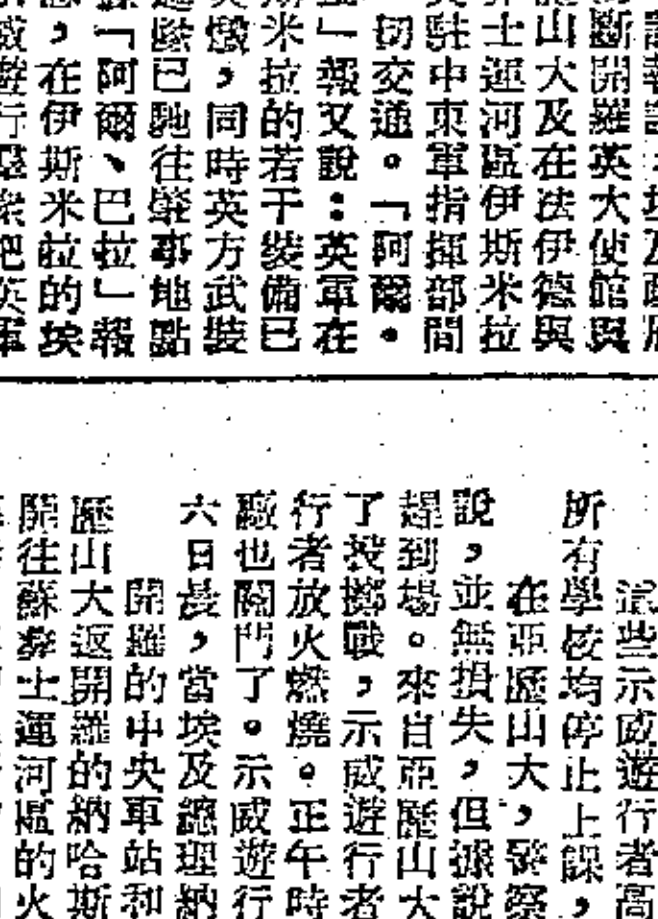 斷開羅英大使館與
山大及在法伊德與
士運河區伊斯米拉
駐中東軍指揮部間
切交通。「阿爾·
」報又說：英軍在
米拉的若干裝備已
燬，同時英方武裝
隊已馳往肇事地點
「阿爾、巴拉」報
，在伊斯米拉的埃
威遊行羣衆把英軍
這些示威遊行者高
所有學校均停止上課，
在亞歷山大，警察
說，並無損失，但據說
趕到場。來自亞歷山大
了投擲戰，示威遊行者
行者放火燃燒。正午時
廠也關門了。示威遊行
六日晨，當埃及總理納
開羅的中央車站和
歷山大返開羅的納哈斯
開往蘇彝士運河區的火